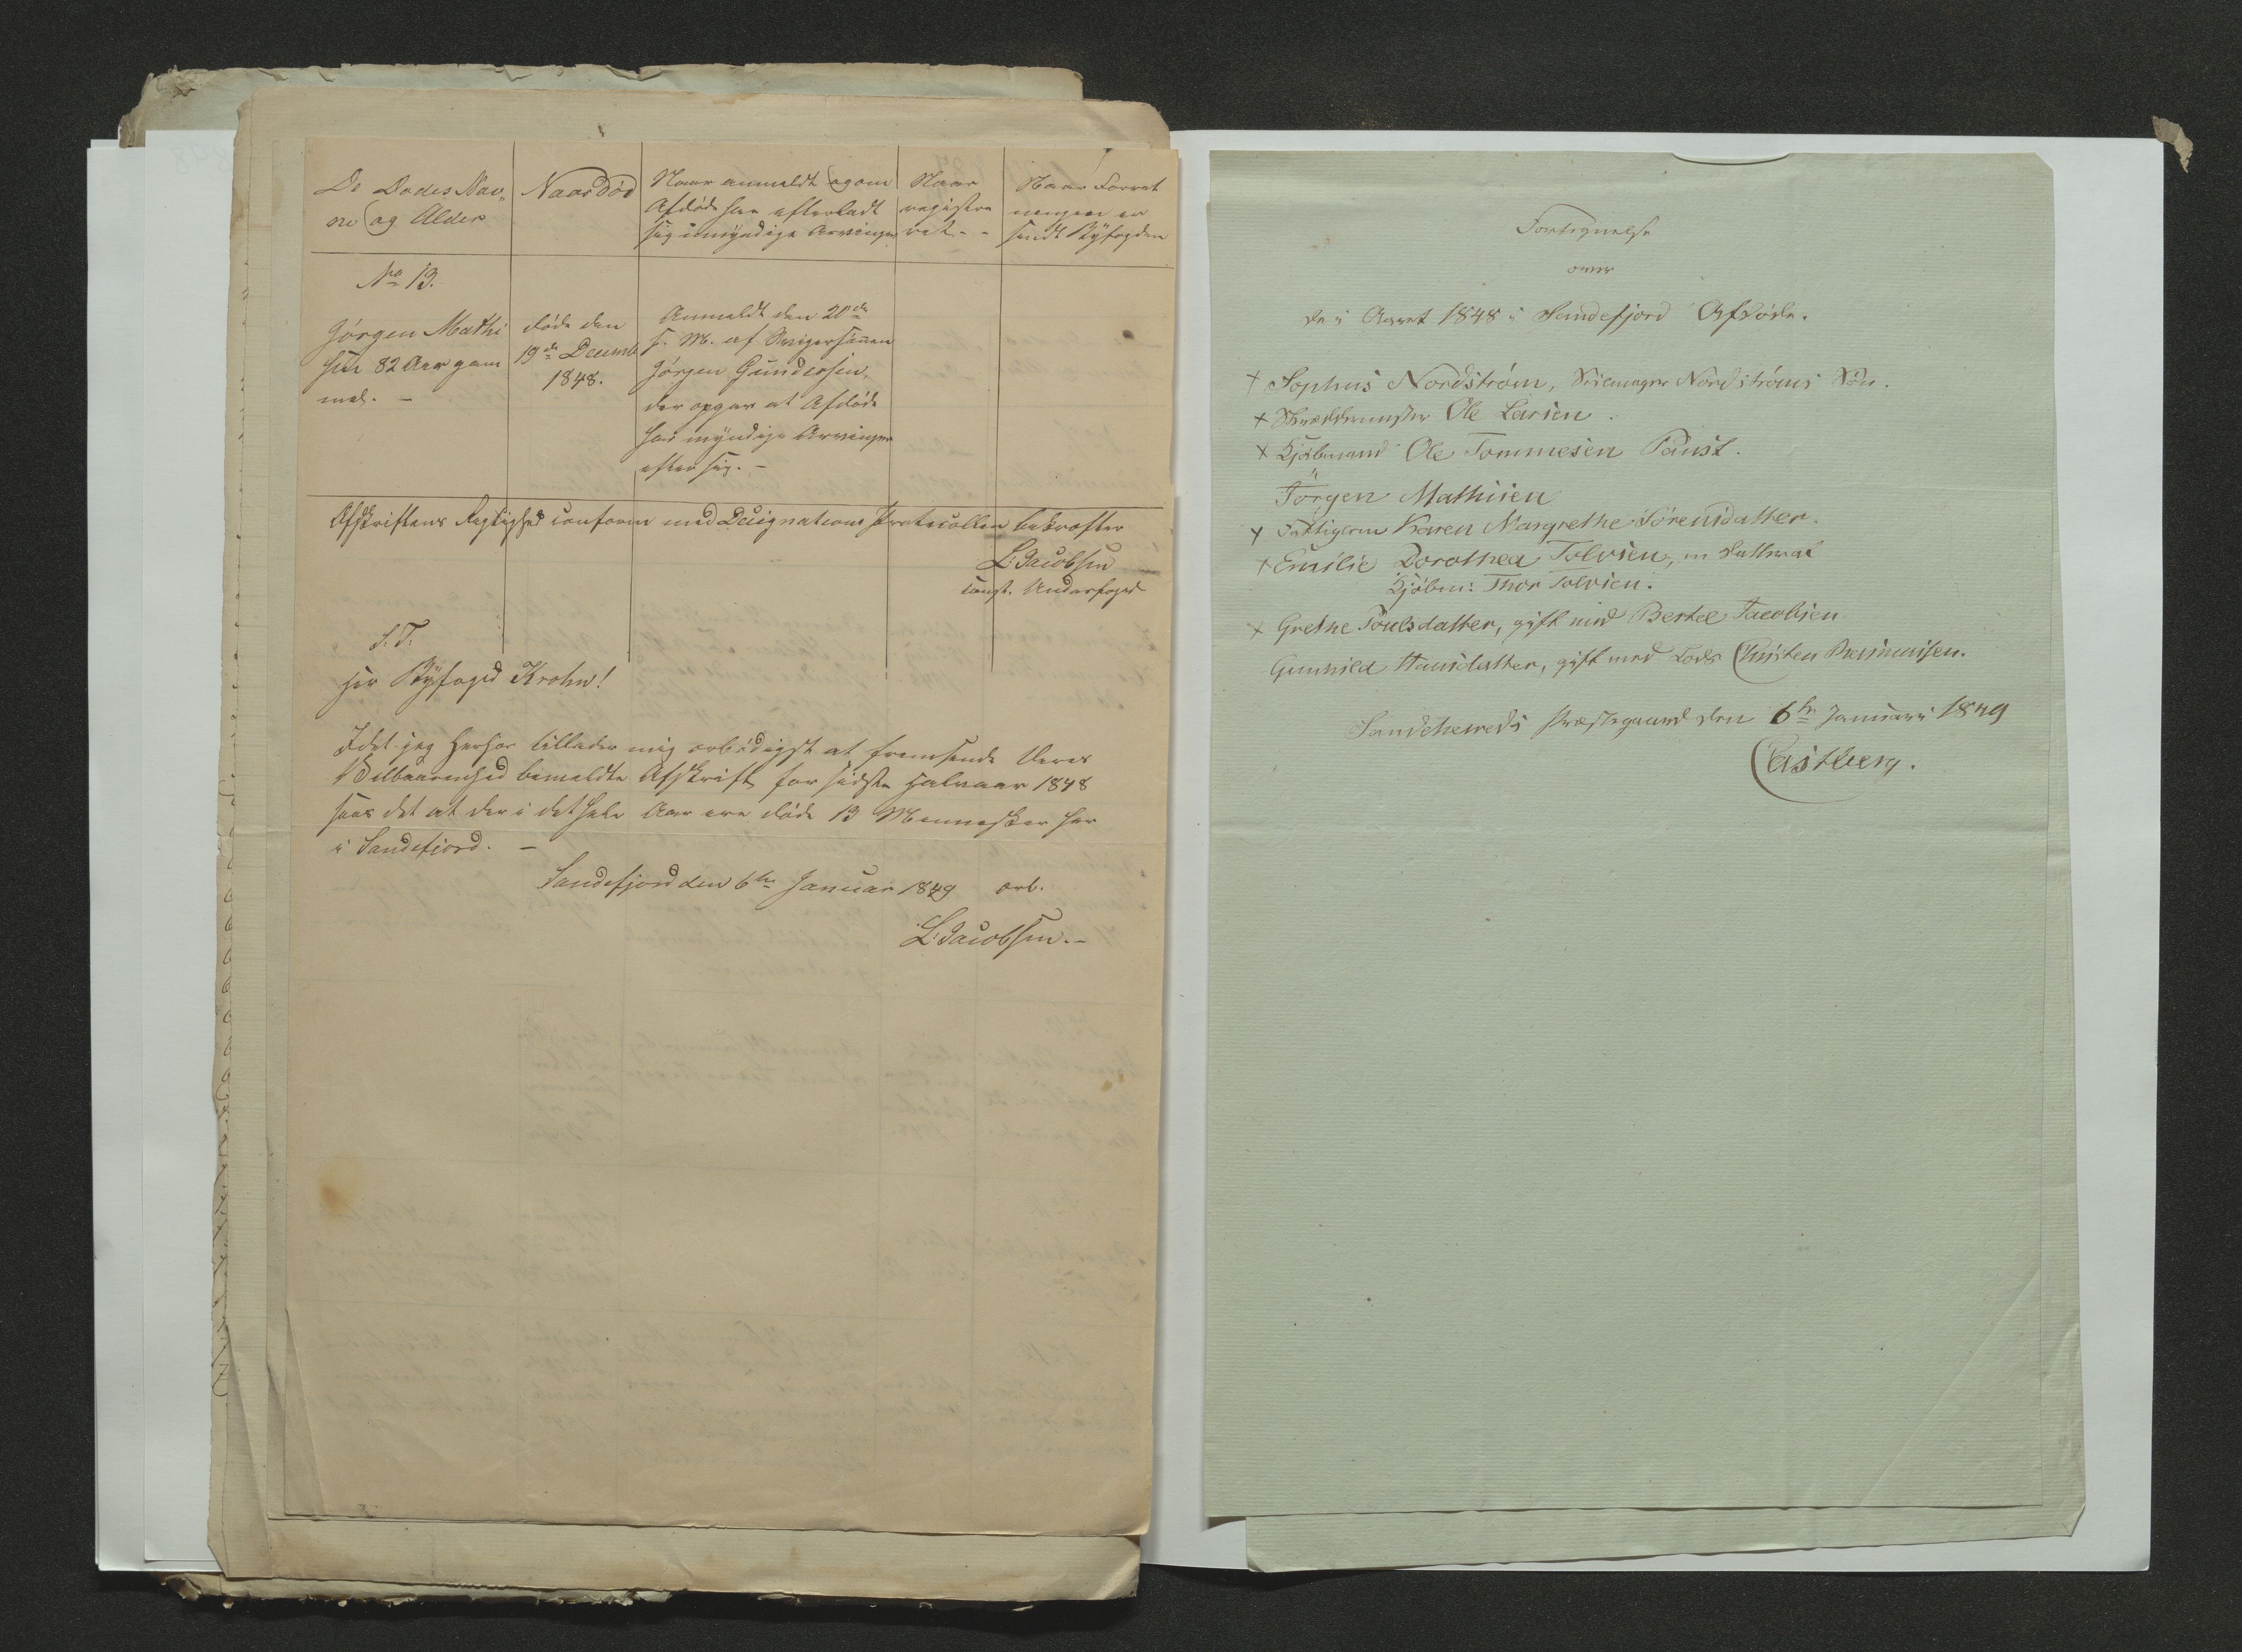 De Dødes Nav-
ne og Alder
Naar Død
Naar anmeldt og om
Afdøde har efterladt
sig umyndige Arvinger
Naar
registre
ret - -
Naar Forret
ningen er
sendt Byfogden
No 13.
Jörgen Mathi
sen 82 Aar gam
mel. -
døde den
19de Decemb
1848.
Anmeldt den 20de
s. M. af Svigersønnen
Jörgen Gundersen,
der opgav at Afdøde
har myndige Arvinger
efter sig. -
Afskriftens Rigtighed conform med Designations Protocollen bekræfter
L: Jacobsen
const. Underfoged
S. T.
Hr Byfoged Krohn!
Idet jeg herhos tillader mig ærbødigst at fremsende Deres
Velbaarenhed bemeldte Afskrift for sidste Halvaar 1848
saas det at der i det hele Aar ere døde 13 Mennesker her
i Sandefjord. -
Sandefjord den 6te Januar 1849 ærb.
L: Jacobsen. -
Fortegnelse
over
de i Aaret 1848 i Sandefjord Afdøde.
+ Sophus Nordström, Nordströms Søn.
+ Skræddermester Ole Larsen.
+ Kjøbmand Ole Tommesen Paust.
Jörgen Mathisen
+ Fattiglem Karen Margrethe Sörensdatter.
+ Emilie Dorothea Tolvsen, en Datter af
Kjøbm: Thor Tolvsen.
+ Grethe Poulsdatter, gift med Bertel Jacobsen
Gunhild Hansdatter, gift med Lods Christen Rasmussen.
Sandeherreds Præstegaard den 6te Januari 1849
Castberg.